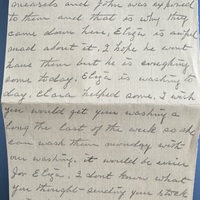 measels and John was exposed
to them and that is why they
came down here, Eliza is awful
mad about it. I hope he wont
have them but he is coughing
some today. Eliza is washing to
day. Clara helped some, I wish
you would get your washing a
long the last of the week so she
can wash them monday with
our washing. it would be easier
for Eliza. I dont know what
you thought sending your stock